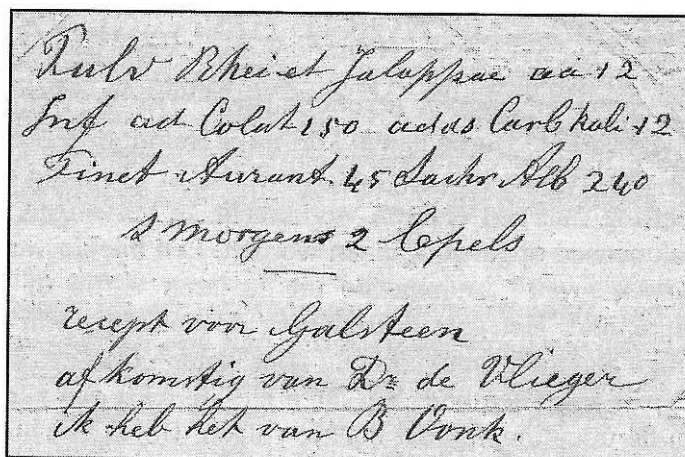 Pulv Rhei et Jalappae aa 12
Inf ad Colat 150 adds Carb kali 12
Tinct Aurant 45 Sachr Alb 240
s morgens 2 lepels
recept voor Galsteen
afkomstig van Dr de Vlieger
ik heb het van B Vonk.